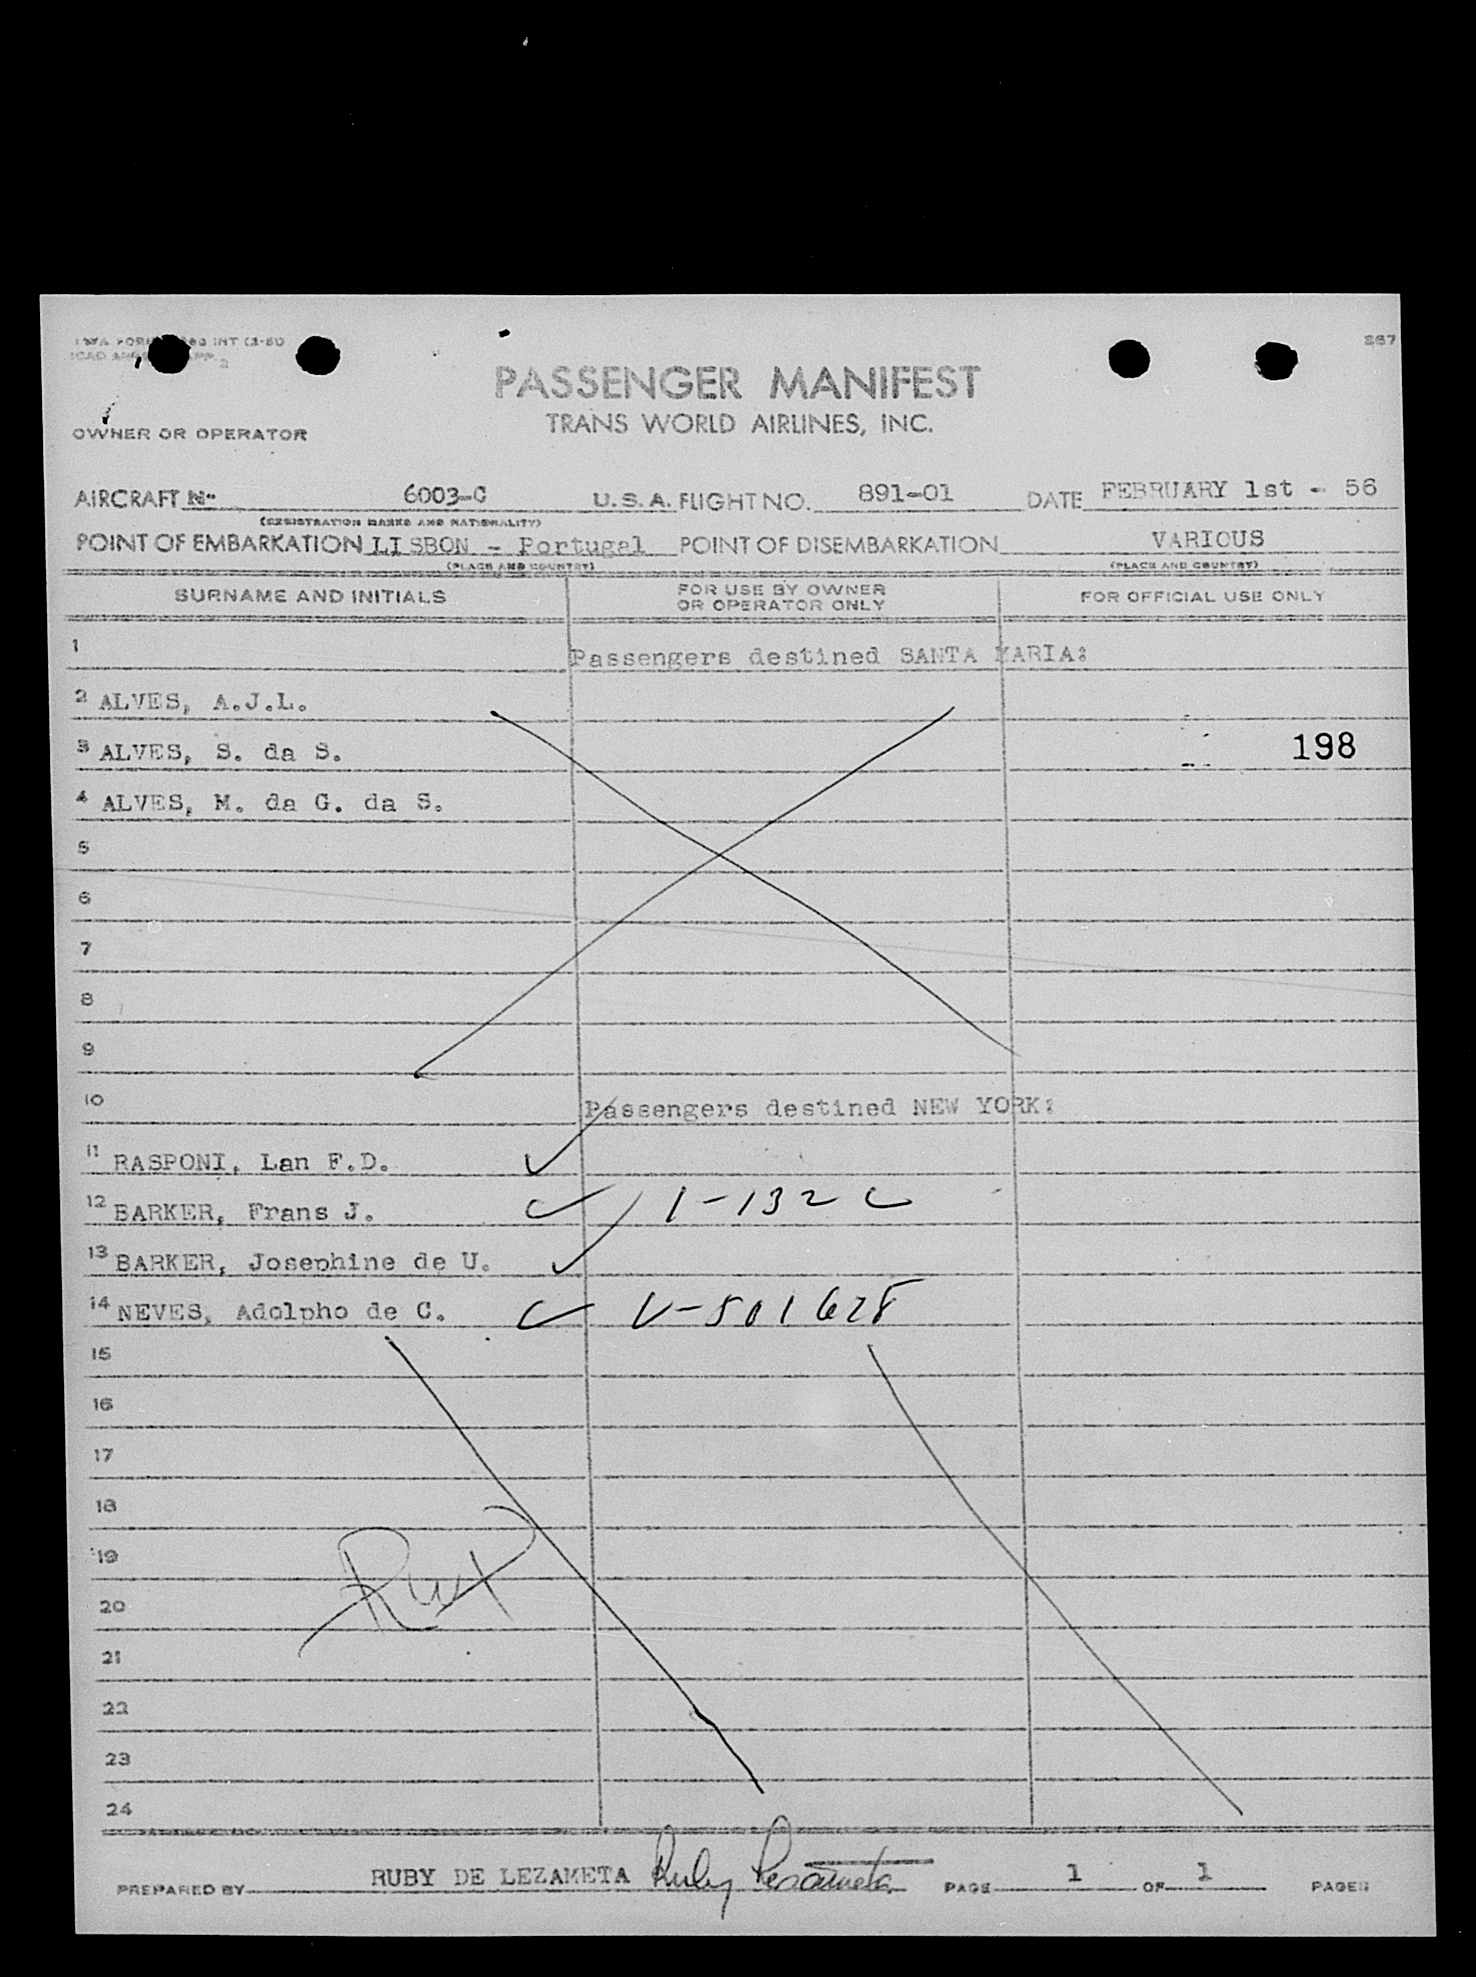 267
PASSENGER MANIFEST
TRANS WORLD AIRLINES, INC.
OWNER OR OPERATOR
AIRCRAFT Nº 6003-C U.S.A. FLIGHT NO. 891-01 DATE FEBRUARY 1st - 56
(REGISTRATION MARKS AND NATIONALITY)
POINT OF EMBARKATION LISBON - Portugal POINT OF DISEMBARKATION VARIOUS
(PLACE AND COUNTRY) (PLACE AND COUNTRY)
SURNAME AND INITIALS FOR USE BY OWNER OR OPERATOR ONLY FOR OFFICIAL USE ONLY
1 Passengers destined SANTA MARIA:
2 ALVES, A.J.L.
3 ALVES, S. da S. 198
4 ALVES, M. da G. da S.
5
6
7
8
9
10 Passengers destined NEW YORK:
11 RASPONI, Lan F.D.
12 BARKER, Frans J. 1-132
13 BARKER, Josephine de U.
14 NEVES, Adolpho de C. V-501628
15
16
17
18
19
20
21
22
23
24
PREPARED BY RUBY DE LEZAMETA Ruby Lezameta PAGE 1 OF 1 PAGES